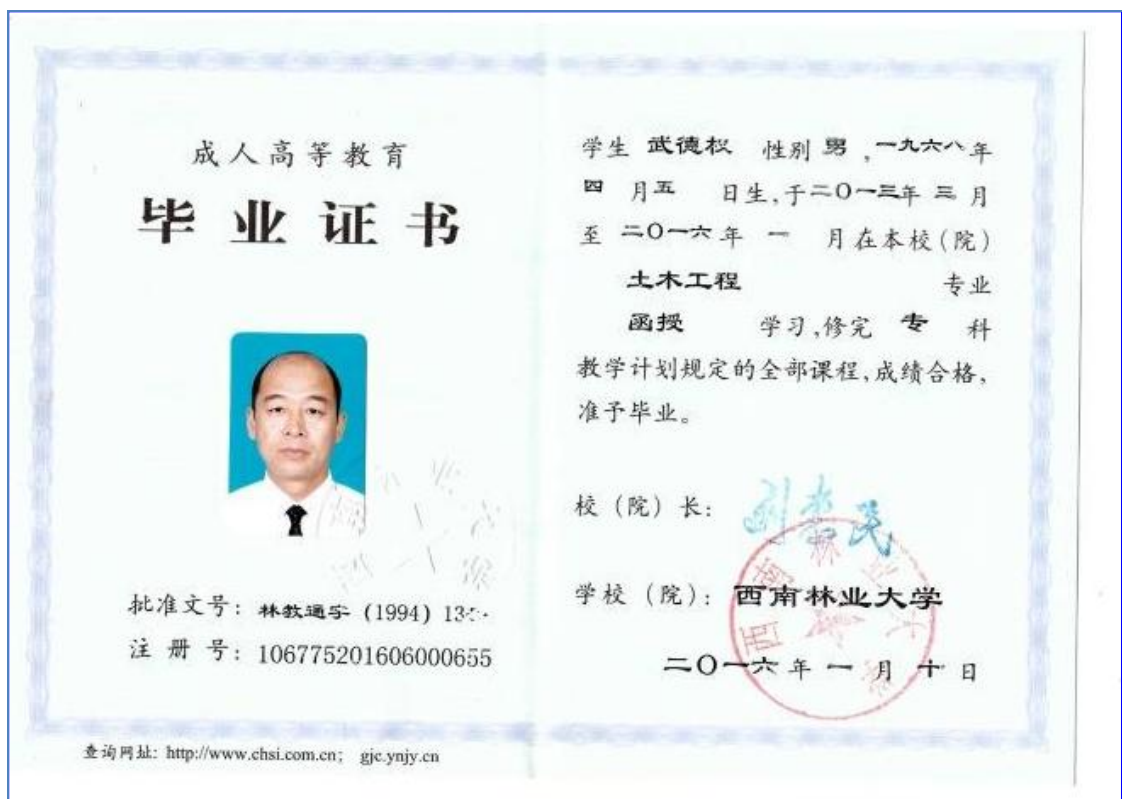 成人高等教育
毕业证书
批准文号: 林教通字 (1994) 13
注册号: 106775201606000655
查询网址: http://www.chsi.com.cn; gjc.ynjy.cn
学生 武德权 性别 男 ,一九六八年
四 月五 日生,于二〇一三年 三 月
至 二〇一六年 一 月在本校(院)
土木工程 专业
函授 学习,修完 专 科
教学计划规定的全部课程,成绩合格,
准予毕业。
校(院)长:
学校(院): 西南林业大学
二〇一六年 一 月 十 日
西南林业大学